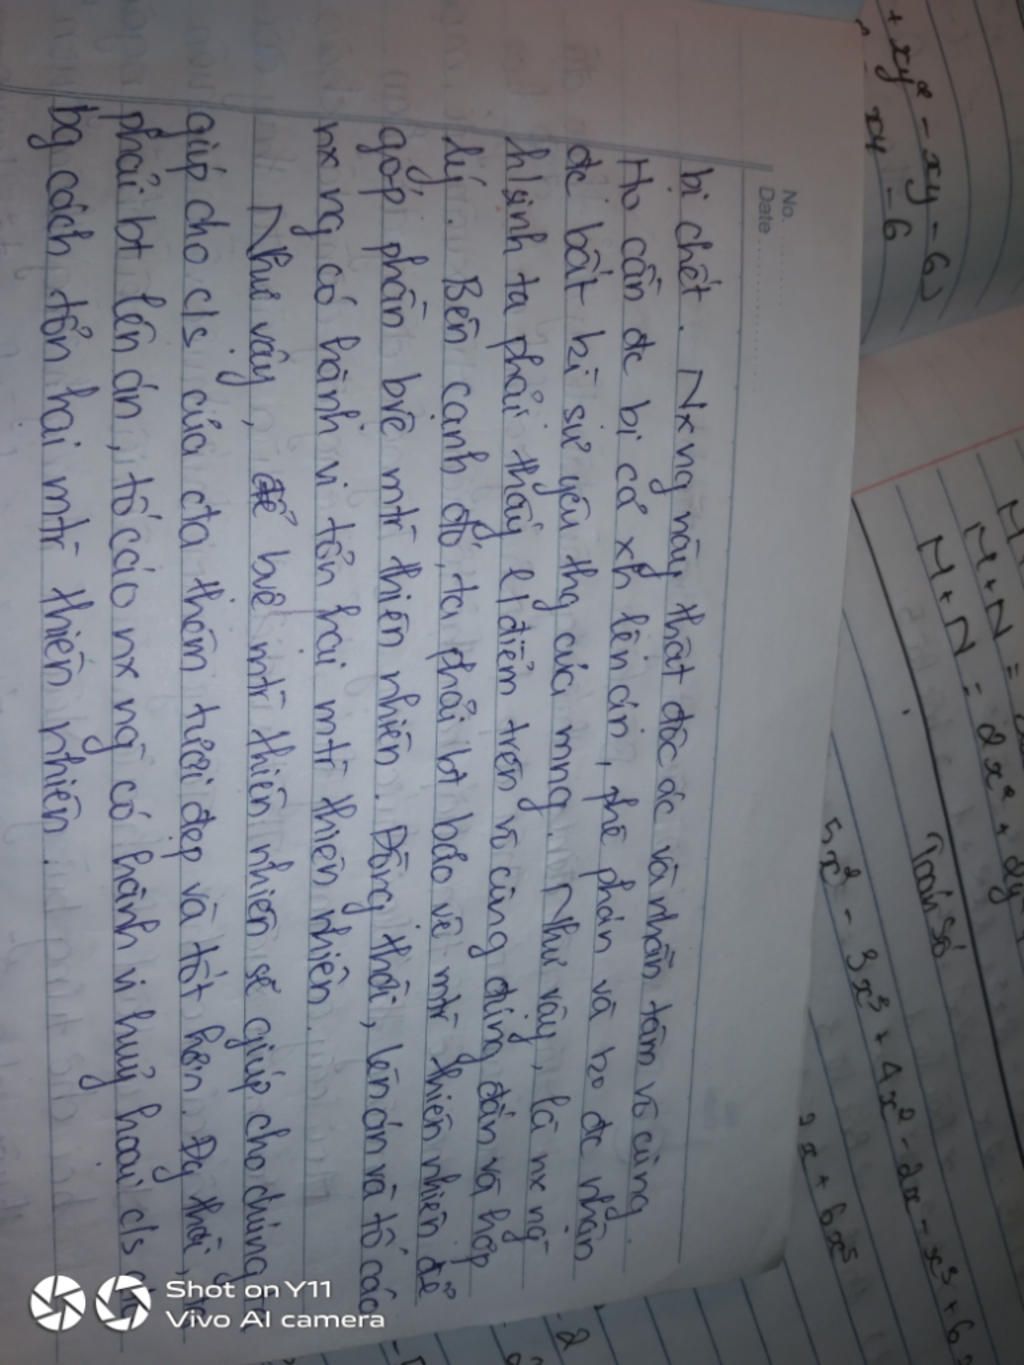 No. ............
Date ............
bị chết. Nx ng này thật độc ác và nhẫn tâm vô cùng.
Họ cần đc bị cả xh lên án, phê phán và ko đc nhận
đc bất kì sự yêu thg của mng. Như vậy, là nx ng
h/sinh ta phải thấy q/điểm trên vô cùng đúng đắn và hợp
lý. Bên cạnh đó, ta phải bt bảo vệ mtr thiên nhiên để
góp phần bvệ mtr thiên nhiên. Đồng thời, lên án và tố cáo
nx ng có hành vi tổn hại mtr thiên nhiên.
Như vậy, để bvệ mtr thiên nhiên sẽ giúp cho chúng ta
giúp cho c/s của cta thêm tươi đẹp và tốt hơn. Đg thời, ta
phải bt lên án, tố cáo nx ng có hành vi huỷ hoại c/s
bg cách tổn hại mtr thiên nhiên.
+ xy² - xy - 6
xy - 6
M + N =
M + N = 2x² + 2y
Toán Số
5x² - 3x³ + 4x² - 2x - x³ + 6
2x + 6x⁵
- 2
Shot on Y11
Vivo AI camera